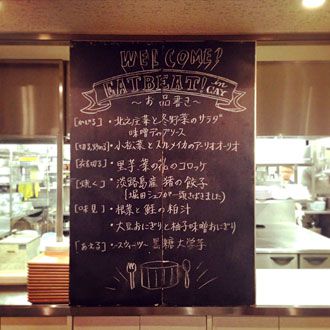 WELCOME!
EATBEAT! in CAY
〜お品書き〜
・北之庄菜と冬野菜のサラダ
味噌ディップソース
・小松菜とスルメイカのアーリオオーリオ
・里芋、菜の花のコロッケ
[焼く]・淡路島産 猪の餃子
(堀田シェフが一晩かけました)
[味見]・根菜と鮭の粕汁
・大豆おにぎりと柚子味噌おにぎり
[あえる]・スウィーツ 黒糖大学芋